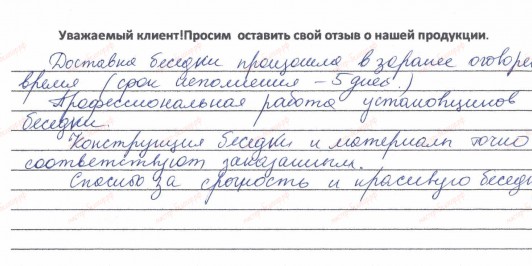 Уважаемый клиент!Просим оставить свой отзыв о нашей продукции.
Доставка беседки произошла в заранее оговорен
время (срок исполнения – 5 дней.)
Профессиональная работа установщиков
беседки.
Конструкция беседки и материалы точно
соответствуют заказанным.
Спасибо за срочность и красивую бесед